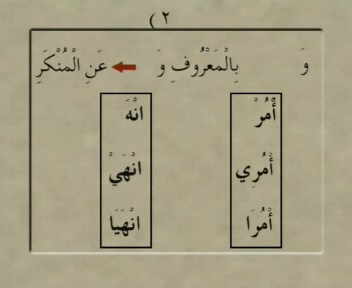 ٢ )
وَ بِالْمَعْرُوفِ وَ عَنِ الْمُنْكَرِ
أْمُرْ انْهَ
أْمُرِي انْهَيْ
أْمُرَا انْهَيَا